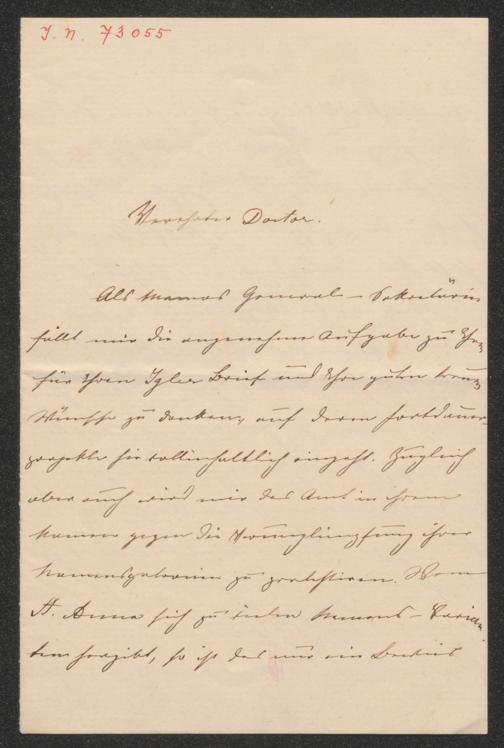 J. N. 73055
Verehrter Doctor!
Als Mamas General-Sekretärin
fällt mir die angenehme Aufgabe zu Ihnen
für Ihren Igler Brief und Ihre guten treuen
Wünsche zu danken, auf deren Fortdauer-
projekte sie vollinhaltlich eingeht. Zugleich
aber auch wird mir das Amt in ihrem
Namen gegen die Verunglimpfung ihrer
Namenspatronin zu protestieren. Wenn
St. Anna sich zu vielen Namens-Varian
ten hergibt, so ist das nur ein Beweis